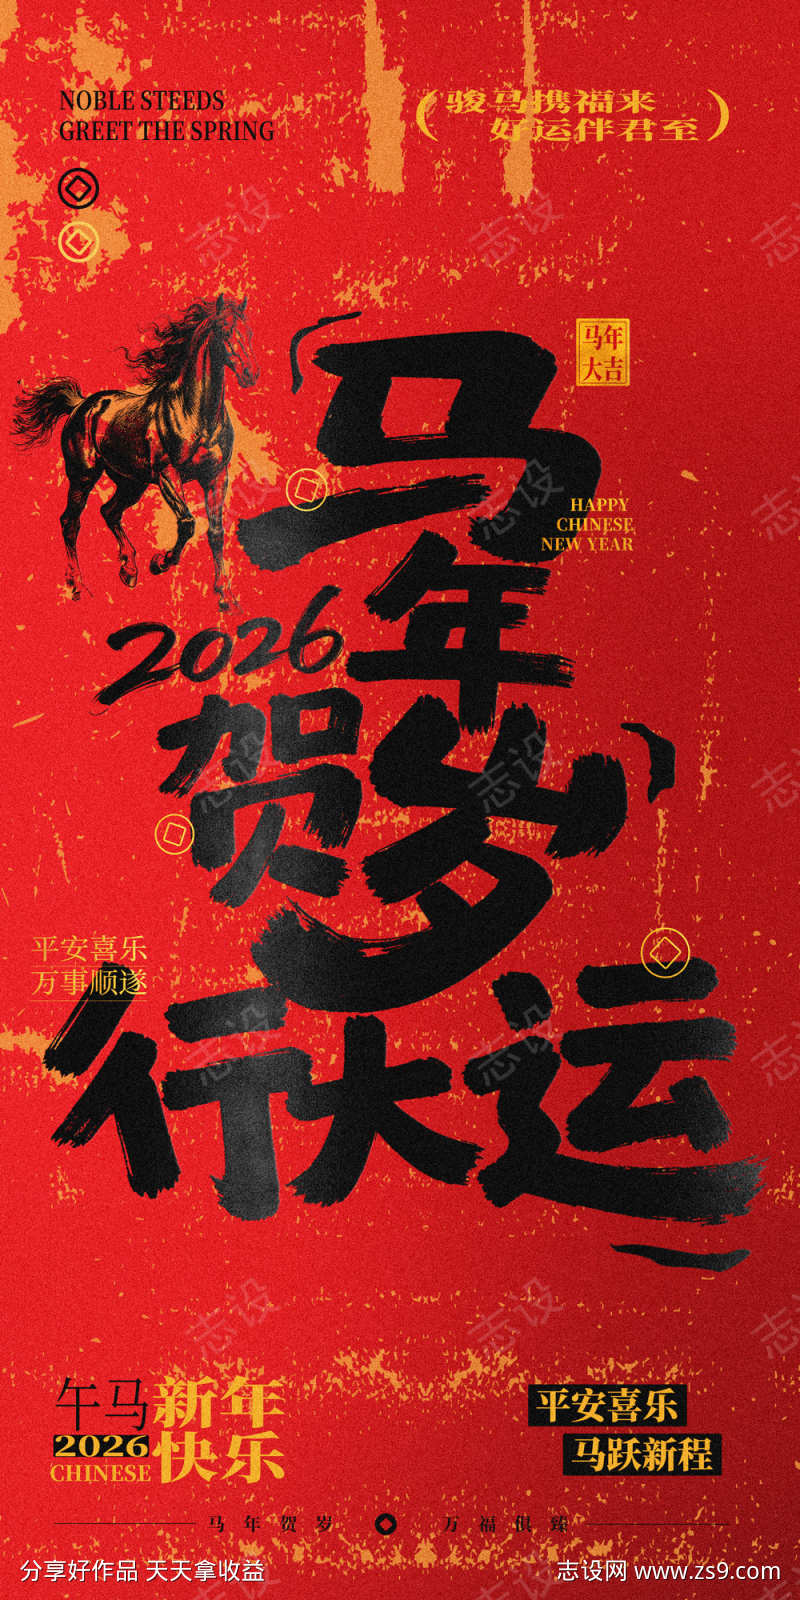 NOBLE STEEDS
GREET THE SPRING
(骏马携福来
好运伴君至)
马年
大吉
马年
HAPPY
CHINESE
NEW YEAR
2026
贺岁
平安喜乐
万事顺遂
行大运
午马
2026
CHINESE
新年
快乐
平安喜乐
马跃新程
马年贺岁 万福俱臻
分享好作品 天天拿收益
志设网 www.zs9.com
志设